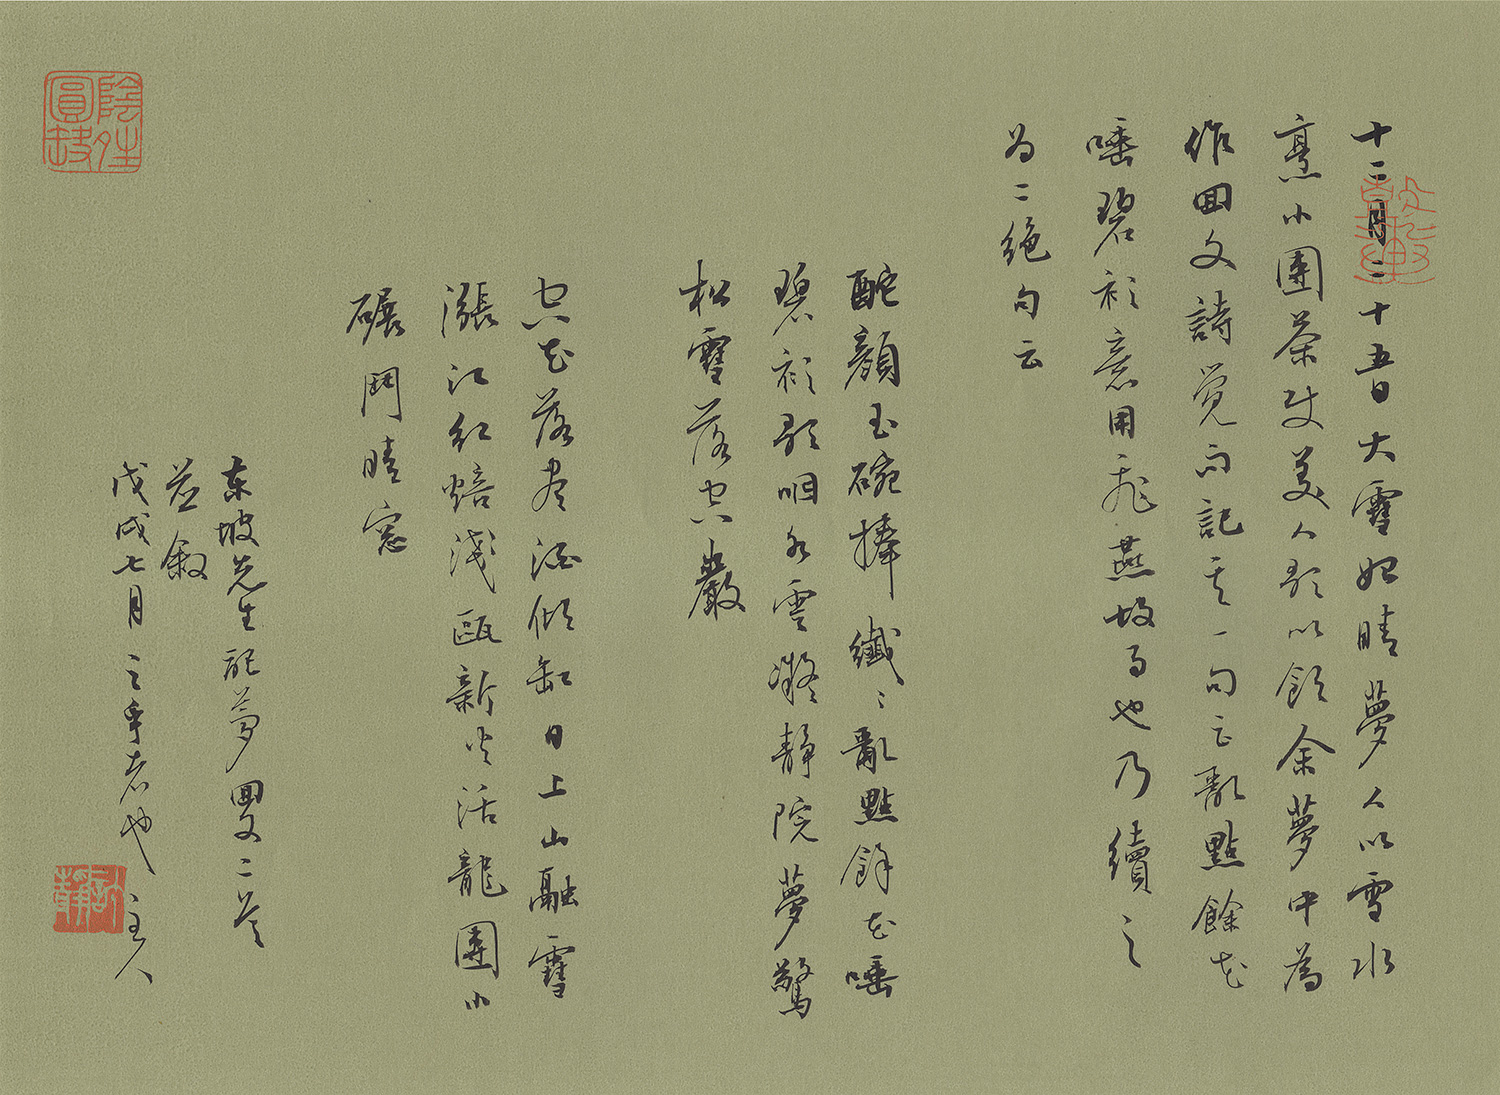 十二月二十五日大雪始晴夢人以雪水
烹小團茶使美人歌以飲余夢中為
作回文詩覺而記其一句云亂點餘花
唾碧衫意用飛燕故事也乃續之
为二絕句云
酡顏玉碗捧纖纖亂點餘花唾
碧衫歌咽水雲凝靜院夢驚
松雪落空巖
空花落盡酒傾缸日上山融雪
漲江紅焙淺甌新火活龍團小
碾鬥晴窓
东坡先生記夢回文二首
並敘
戊戌七月 主人
陰晴圓缺